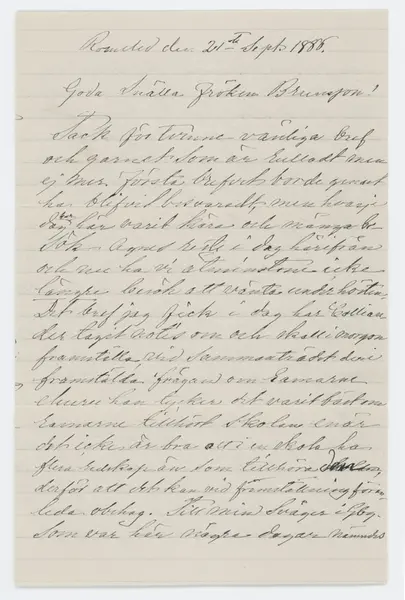 den 21ste Sept 1886.
Goda Snälla Fröken Brunsson!
Tack för tvenne vänliga bref
och garnet som är men
ej mer. första brefvet borde genast
ha blifvit besvaradt men hvarje
dag har varit kära och många be
sök. Agnes reste i dag härifrån
och nu ha vi åtminstone icke
längre besök att vänta under hösten.
Det bref jag fick i dag har
der taget notis om och skall i morgon
framställa vid sammanträdet den
framstälda frågan om
ehuru han tycker det varit bäst om
tillhört skolan, enär
det icke är bra att i en skola ha
flera redskap än som tillhöra
derför att det kan vid förevisning föran
leda obehag. Till min Svåger i
som var här några dagar nämndes